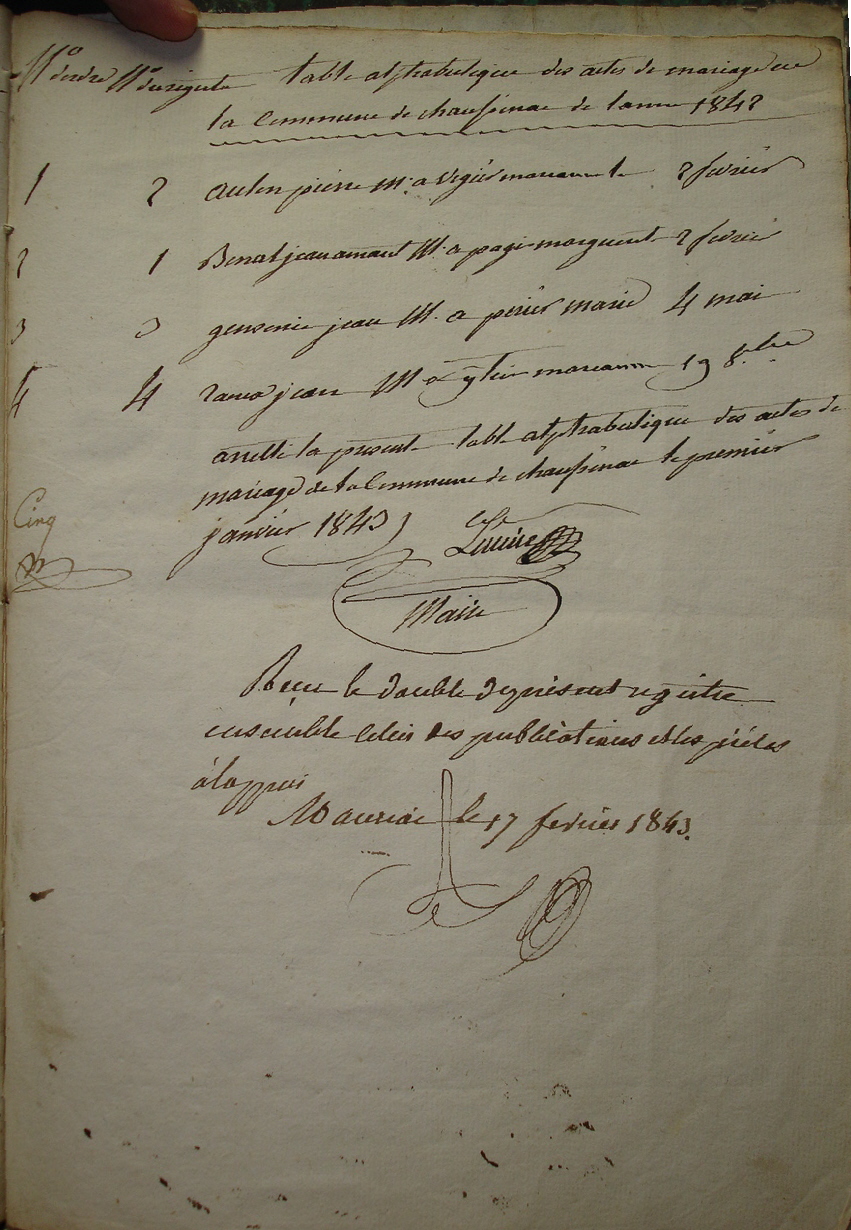 No d'ordre No du registre table alphabetique des actes de mariage de
la Commune de chaussenac de l'anne 1842
1 2 pierre M. a vigier marianne le 2 fevrier
2 1 Benat jean amant M. a page marguerit 2 fevrier
3 3 jean M. a perier marie 4 mai
4 4 jean M a marianne 19 8.bre
arrette la presente table alphabetique des actes de
mariage de la Commune de chaussenac le premier
janvier 1843
Cinq
Maire
Recu le double du present registre
ensemble celui des publications et les pièces
à l'appui
Mauriac le 17 fevrier 1843.